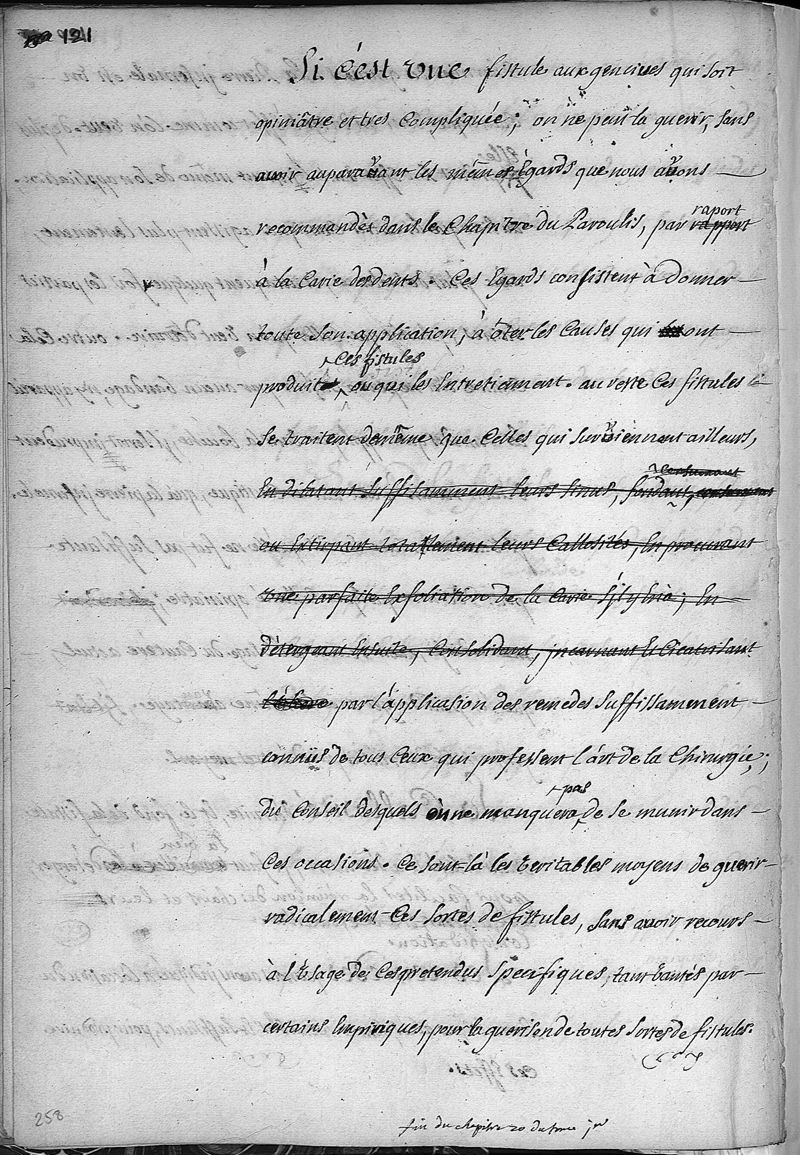 121
Si c'est vne fistule aux gencives qui soit
opiniâtre et tres Compliquée; on ne peut la guerir, sans
avoir auparavant les mêmes Egards que nous avons
recommandès dans le Chapitre du Paroulis, par rapport raport
à la Carie des dents. Ces Egards consistent à donner
toute son application, à ôter les Causes qui ont
produit ces fistules, ou qui les Entretienment. au reste Ces fistules
se traitent de même que Celles qui surviennent ailleurs,
En dilatant suffisamment leurs sinus, fondant, consumant
ou Extirpant totallement leurs Callosités, En procurant
vne parfaite Exfoliation de la Carie s'il y En a; En
détergeant Ensuite, Consolidant, jncarnant Et Cicatrisant
par l'application des remedes suffissamment
connüs de tous Ceux qui professent l'art de la Chirurgie;
du Conseil desquels on ne manquera pas de se munir dans
Ces occasions. Ce sont-là les veritables moyens de guerir
radicalement Ces sortes de fistules, sans avoir recours
à l'Vsage de Ces pretendus specifiques, tant vantés par
certains Empiriques, pour la guerison de toutes sortes de fistules.
258
fin du chapitre 20 du tome jer